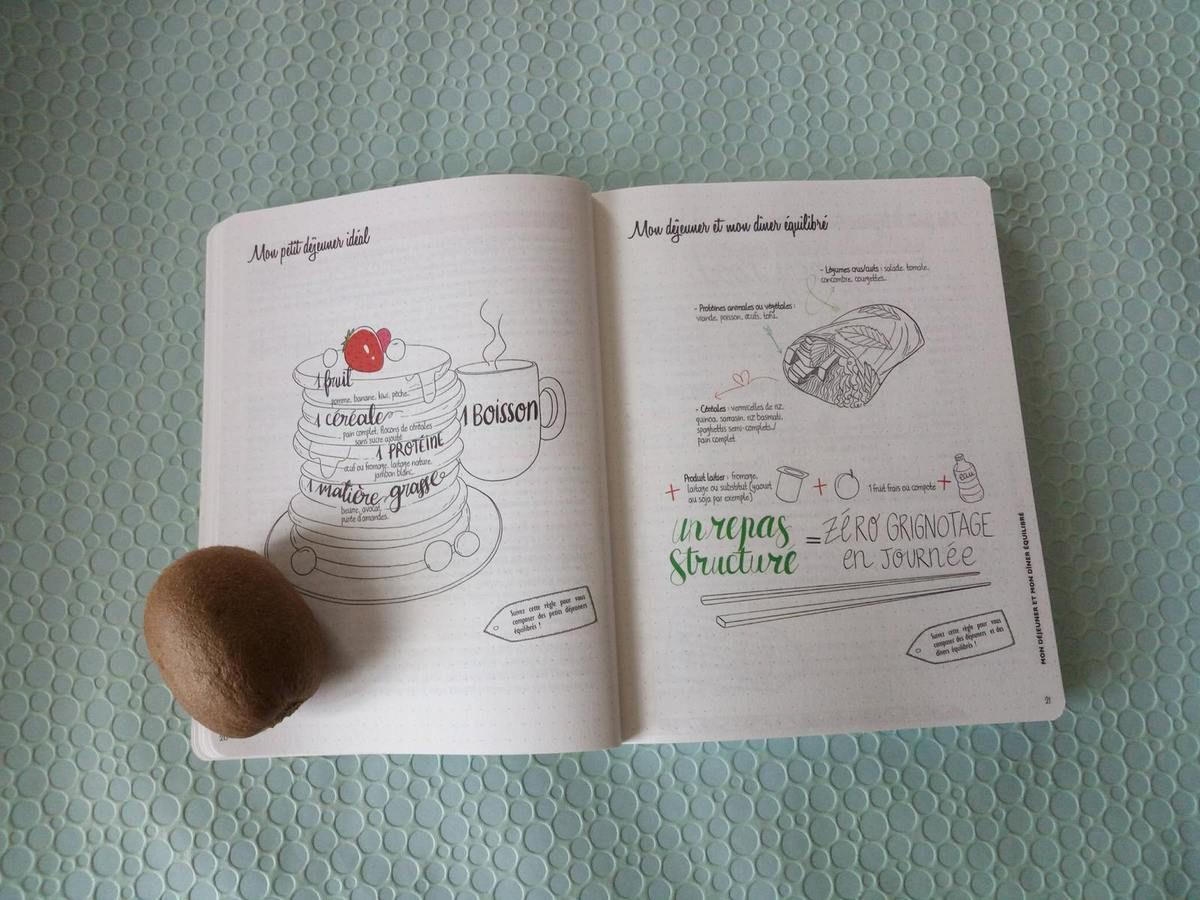 Mon petit déjeuner idéal
1 fruit
pomme, banane, kiwi, pêche...
1 céréale
pain complet, flocons de céréales
sans sucre ajouté
1 PROTÉINE
œuf ou fromage, laitage nature,
jambon blanc...
1 matière grasse
beurre, avocat,
purée d'amandes...
1 BOISSON
Suivez cette règle pour vous
composer des petits déjeuners
équilibrés !
20
Mon déjeuner et mon dîner équilibré
- Légumes crus/cuits : salade, tomate,
concombre, courgettes...
- Protéines animales ou végétales :
viande, poisson, œufs, tofu...
- Céréales : vermicelles de riz,
quinoa, sarrasin, riz basmati,
spaghettis semi-complets/
pain complet
+ Produit laitier : fromage,
laitage ou substitut (yaourt
au soja par exemple)
+
1 fruit frais ou compote
+
eau
un repas
structuré
= ZÉRO GRIGNOTAGE
en JOURNÉE
Suivez cette règle pour vous
composer des déjeuners et des
dîners équilibrés !
MON DÉJEUNER ET MON DÎNER ÉQUILIBRÉ
21